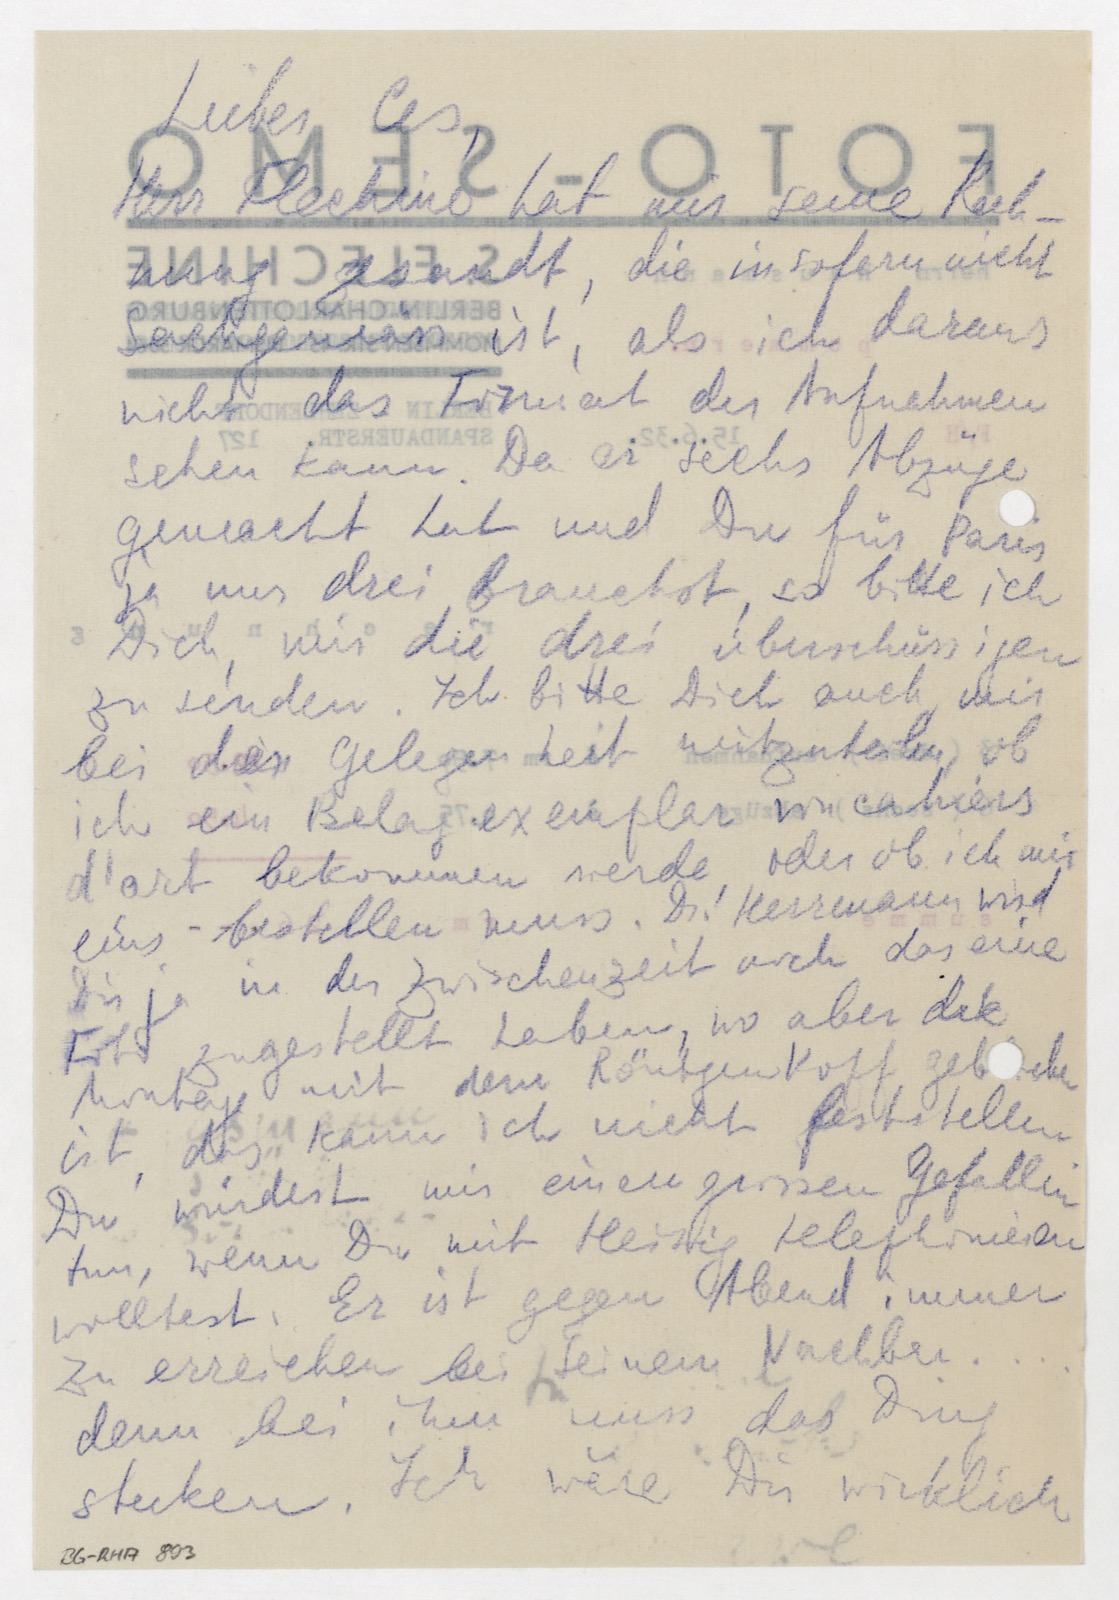 Lieber Ces,
Herr Flechine hat mir seine Rech-
nung gesandt, die insofern nicht
sachgemäss ist, als ich daraus
nicht das Format der Aufnahmen
sehen kann. Da er sechs Abzüge
gemacht hat und Du für Paris
ja nur drei brauchst, so bitte ich
Dich, mir die drei überschüssigen
zu senden. Ich bitte Dich auch mir
bei der Gelegenheit mitzuteilen, ob
ich ein Belagexemplar von cahiers
d'art bekommen werde, oder ob ich mir
eins bestellen muss. Dr. Herrmann wird
Dir ja in der Zwischenzeit auch das eine
Foto zugestellt haben, wo aber die
Montage mit dem Röntgenkopf geblieben
ist, das kann ich nicht feststellen
Du würdest mir einen grossen Gefallen
tun, wenn Du mit Heissig telephonieren
wolltest. Er ist gegen Abend immer
zu erreichen bei seinem Nachbar....
denn bei ihm muss das Ding
stecken. Ich wäre Dir wirklich
BG-RHA 893
FOTO-SEMO
S. FLECHINE
BERLIN-CHARLOTTENBURG
BERLIN
SPANDAUERSTR. 127
15.6.32.